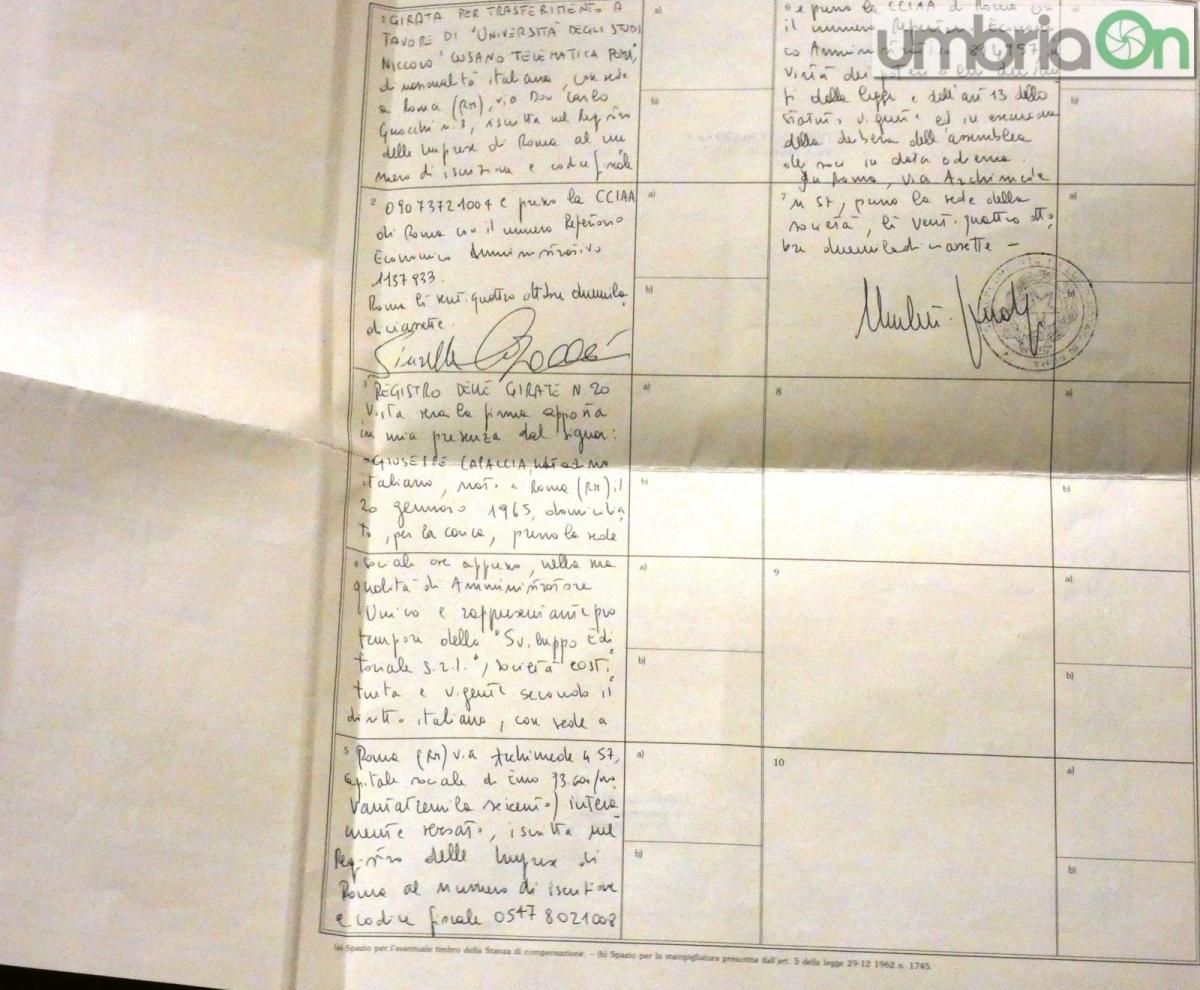 1 GIRATA PER TRASFERIMENTO A
FAVORE DI "UNIVERSITÀ DEGLI STUDI
NICCOLO' CUSANO TELEMATICA ROMA",
di nazionalità italiana, con sede
a Roma (RM), via Don Carlo
Gnocchi n. 3, iscritta nel Registro
delle Imprese di Roma al nu
mero di iscrizione e codice fiscale
2 09073721004 e presso la CCIAA
di Roma con il numero Repertorio
Economico Amministrativo
1137933.
Roma lì ventiquattro ottobre duemila
diciassette.
3 REGISTRO DELLE GIRATE N. 20
Vista vera la firma apposta
in mia presenza dal signor:
- GIUSEPPE CAPACCIA,
italiano, nato a Roma (RM) il
20 gennaio 1965, domicilia
to, per la carica, presso la sede
4 sociale ove appresso, nella sua
qualità di Amministratore
Unico e rappresentante pro
tempore della "Sviluppo Edi
toriale s.r.l.", società costi
tuita e vigente secondo il
diritto italiano, con sede a
5 Roma (RM) via Archimede n 57,
capitale sociale di Euro 93.600/no
vantatremila seicento) intera
mente versato, iscritta nel
Registro delle Imprese di
Roma al numero di iscrizione
e codice fiscale 05478021008
e presso la CCIAA di Roma con
il numero Repertorio Economi
co Amministrativo
virtù dei poteri a lui
ti dalla legge e dell'art 13 dello
statuto vigente ed in esecuzione
della delibera dell'assemblea
dei soci in data odierna.
In Roma, via Archimede
7 n 57, presso la sede della
società, lì ventiquattro otto
bre duemiladiciassette -
8
9
10
a)
b)
a)
b)
a)
b)
a)
b)
a)
b)
a)
b)
a)
b)
a)
b)
a)
b)
a)
b)
(a) Spazio per l'eventuale timbro della Stanza di compensazione. – (b) Spazio per la stampigliatura prescritta dall'art. 5 della legge 29-12 1962 n. 1745.
umbriaOn